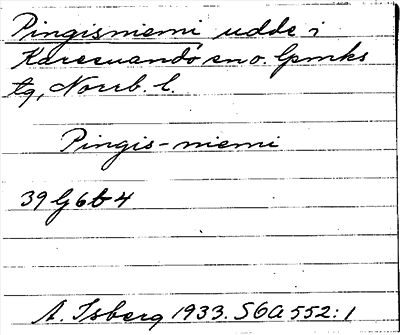 Pingisniemi udde i
Karesuando sn o. lpmks
tg, Norrb. l.
Pingis-niemi
39 G 6b 4
A. Isberg 1933. S6A 552:1